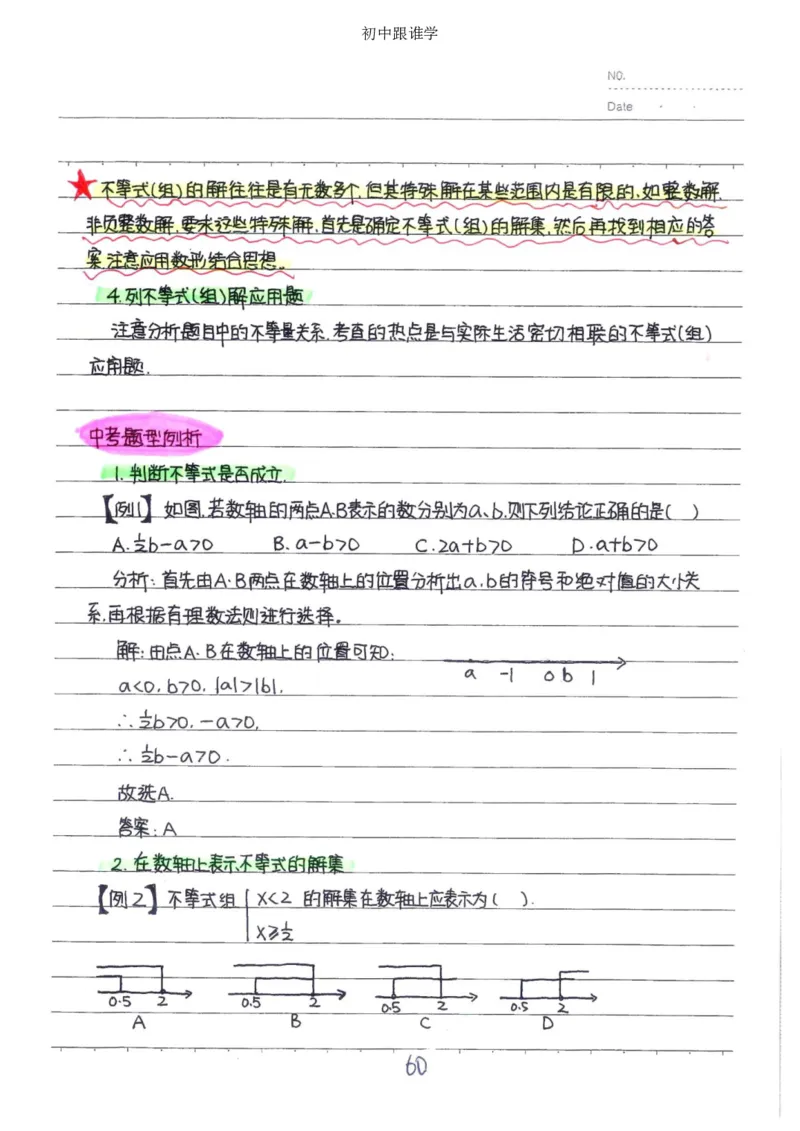 初中跟谁学
NO.
Date
★不等式(组)的解往往是有无数多个,但其特殊解在某些范围内是有限的,如整数解,
非负整数解,要求这些特殊解,首先是确定不等式(组)的解集,然后再找到相应的答
案,注意应用数形结合思想。
4.列不等式(组)解应用题
注意分析题目中的不等量关系,考查的热点是与实际生活密切相联的不等式(组)
应用题.
中考题型例析
1.判断不等式是否成立.
【例1】如图,若数轴的两点A.B表示的数分别为a、b,则下列结论正确的是( )
A.½b-a>0 B.a-b>0 C.2a+b>0 D.a+b>0
分析:首先由A·B两点在数轴上的位置分析出a,b的符号和绝对值的大小关
系,再根据有理数法则进行选择。
解:由点A·B在数轴上的位置可知:
a -1 0 b 1
a<0,b>0,|a|>|b|,
∴½b>0,-a>0,
∴½b-a>0.
故选A.
答案:A
2.在数轴上表示不等式的解集
【例2】不等式组 x<2 的解集在数轴上应表示为( ).
x≥½
0.5 2 0.5 2 0.5 2 0.5 2
A B C D
60